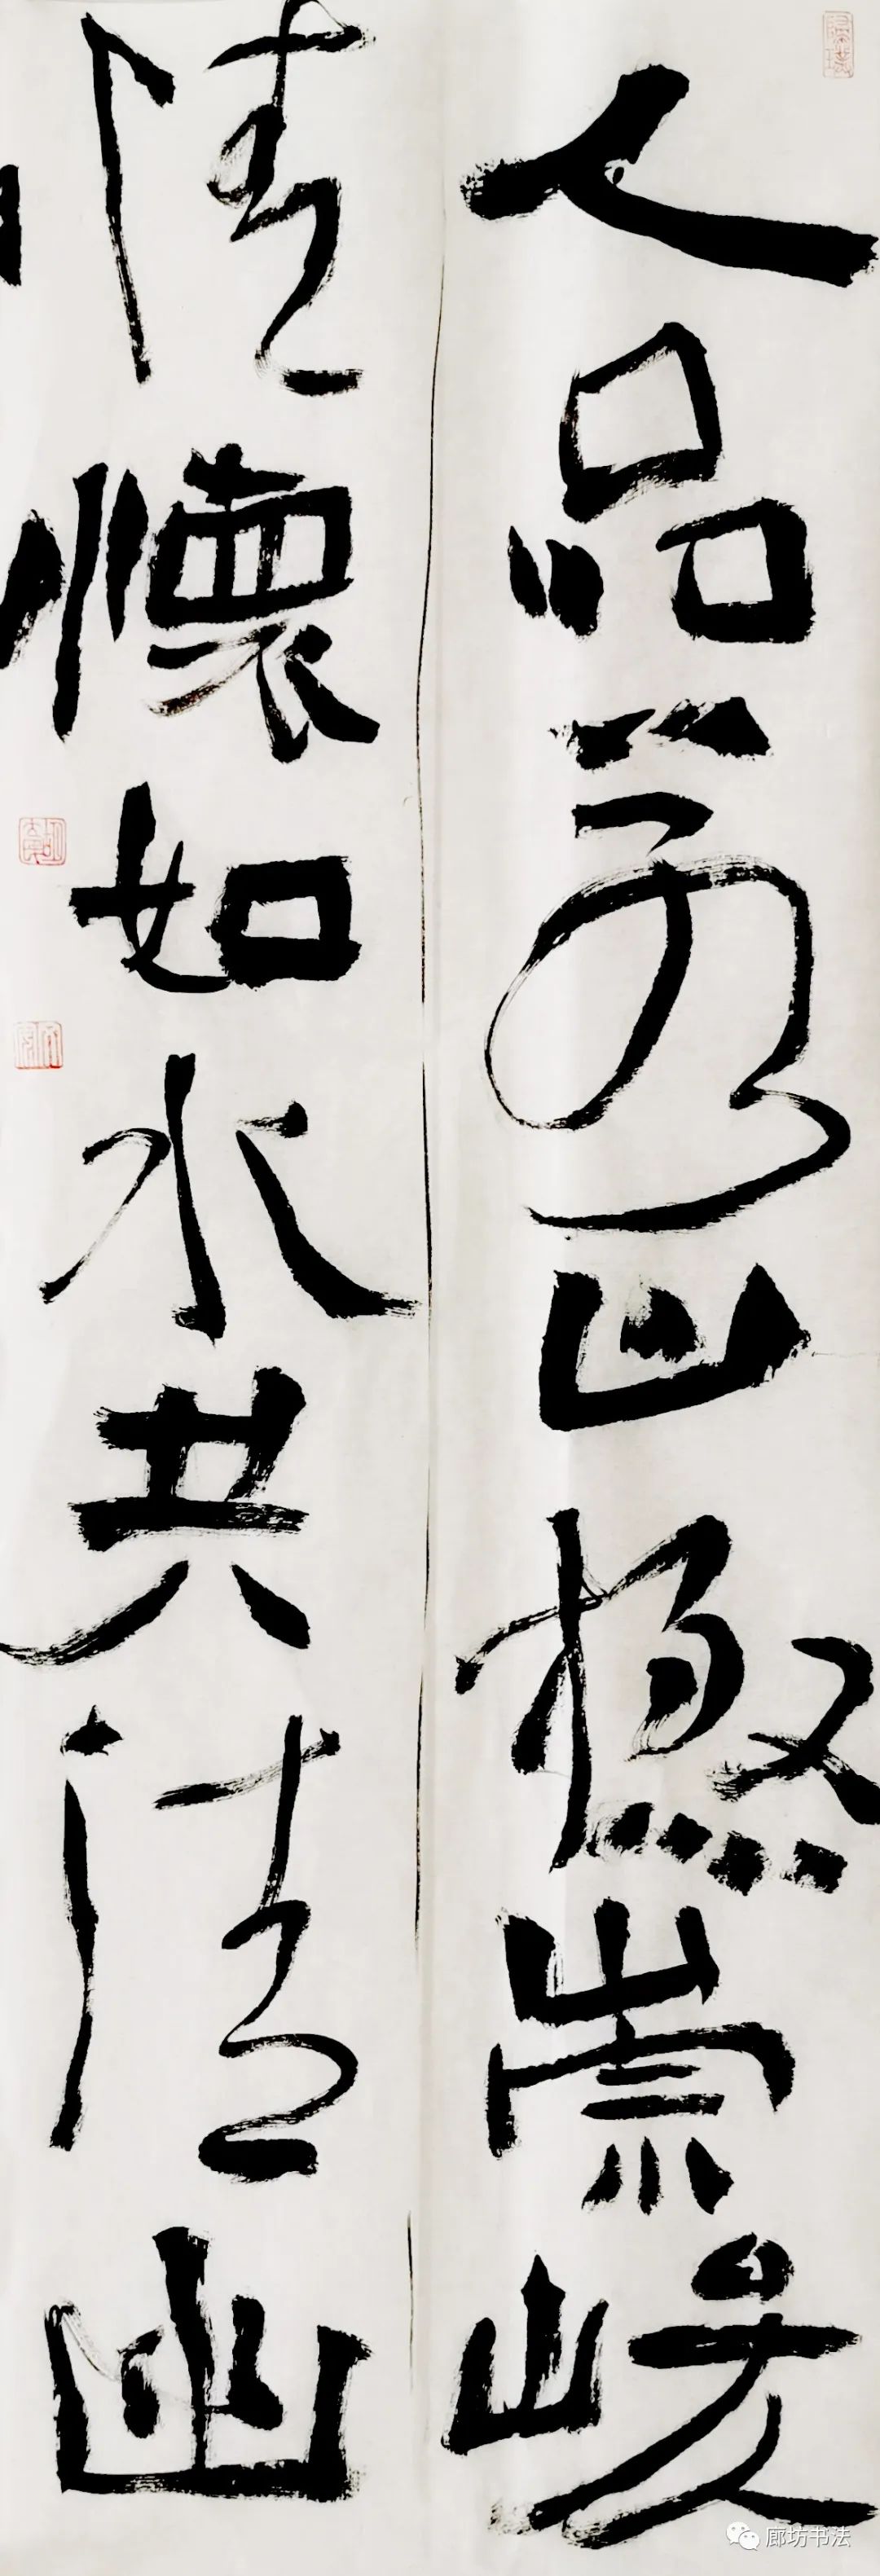 人品若山極崇峻
情懷如水共清幽
廊坊书法